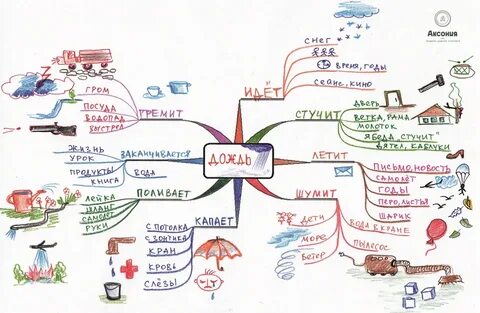 Аксония
СНЕГ
ВРЕМЯ, ГОДЫ
СЕАНС, КИНО
ИДЁТ
ГРОМ
ПОСУДА
ВОДОПАД
ВЫСТРЕЛ
ГРЕМИТ
СТУЧИТ
ДВЕРЬ
ВЕТКА, РАМА
МОЛОТОК
ЯБЕДА "СТУЧИТ"
ДЯТЕЛ, КАБЛУКИ
ЖИЗНЬ
УРОК
ПРОДУКТЫ
КНИГА
ВОДА
ЗАКАНЧИВАЕТСЯ
ДОЖДЬ
ЛЕТИТ
ПИСЬМО, НОВОСТЬ
САМОЛЁТ
ГОДЫ
ПЕРО, ЛИСТЬЯ
ШАРИК
ЛЕЙКА
ШЛАНГ
САМОЛЁТ
РУКИ
ПОЛИВАЕТ
КАПАЕТ
С ПОТОЛКА
С ЗОНТИКА
КРАН
КРОВЬ
СЛЁЗЫ
ШУМИТ
ДЕТИ
МОРЕ
ВЕТЕР
ВОДА В КРАНЕ
ПЫЛЕСОС